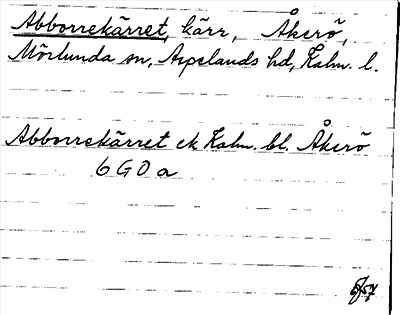 Abborrekärret, kärr, Åkerö,
Mörlunda sn, Aspelands hd, Kalm. l.
Abborrekärret ek Kalm. bl. Åkerö
6 G 0 a